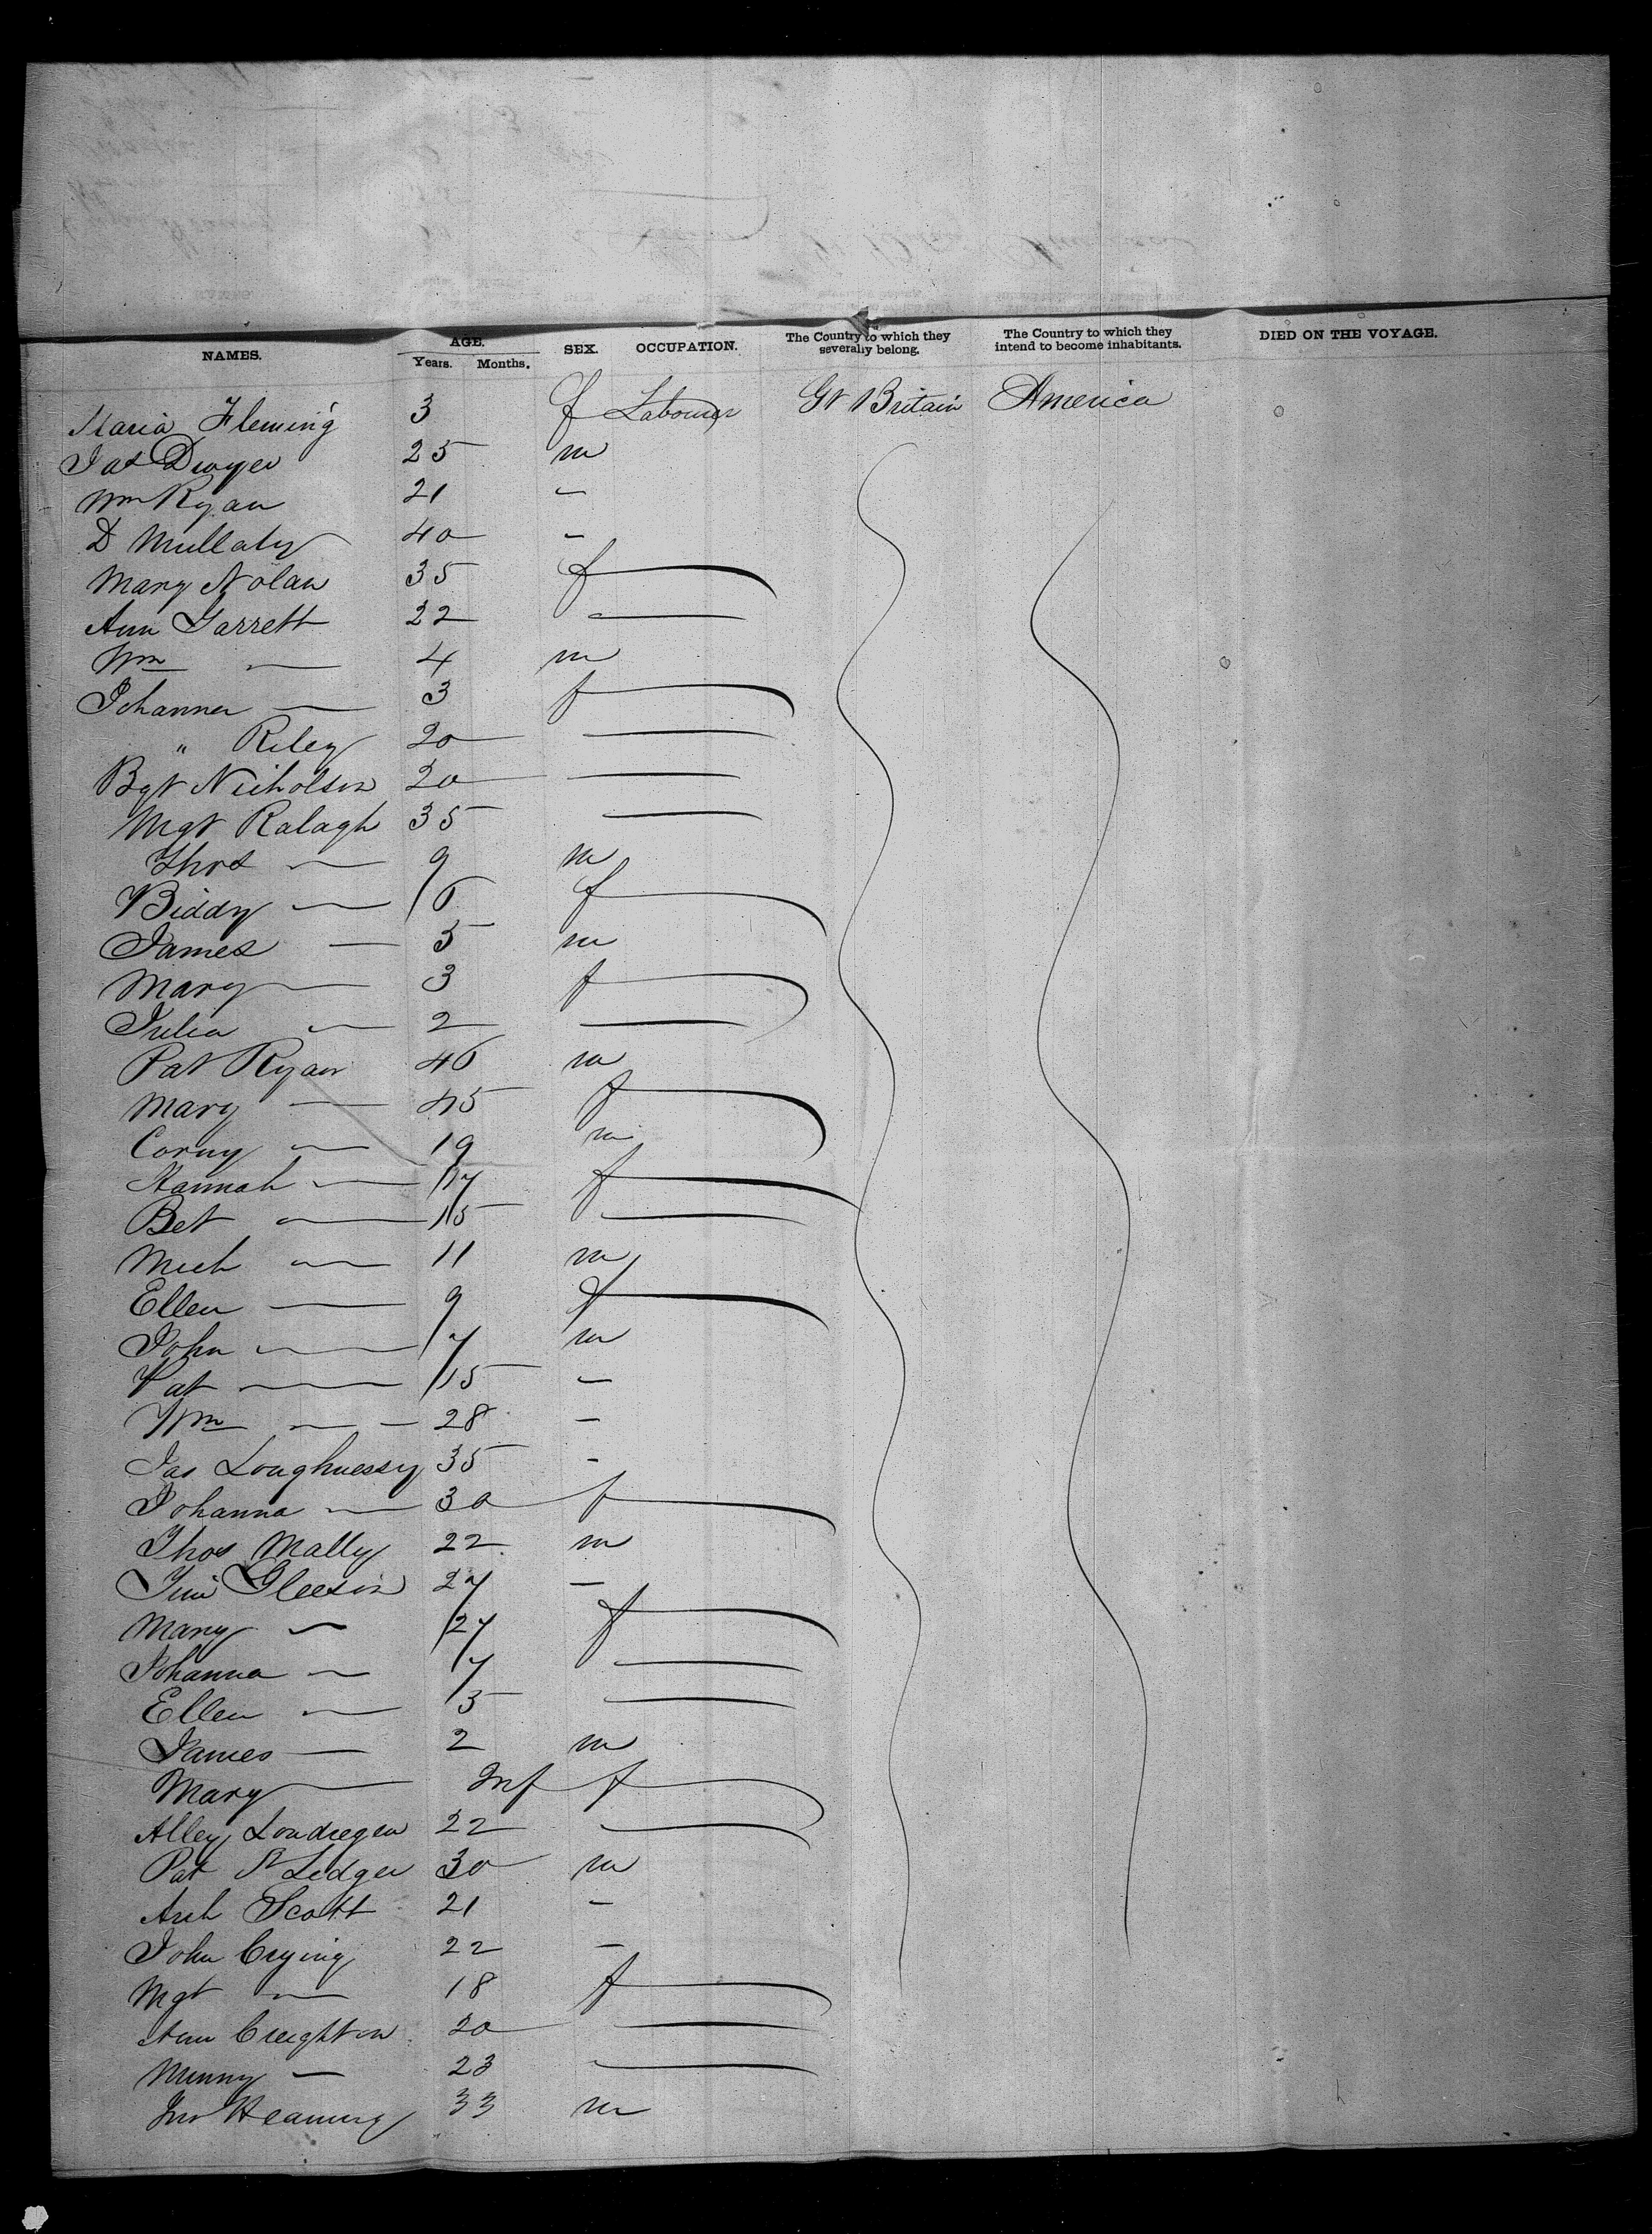 NAMES. AGE. Years. Months. SEX. OCCUPATION. The Country to which they severally belong. The Country to which they intend to become inhabitants. DIED ON THE VOYAGE.
Maria Fleming 3 f Labourer Gt Britain America
Jas Dwyer 25 m
Wm Ryan 21 -
D Mullaly 40 -
Mary Nolan 35 f
Ann Garrett 22 —
Wm — 4 m
Johanna — 3 f
" Riley 20 —
Bgt Nicholson 20 —
Mgt Ralagh 35 —
Thos — 9 m
Biddy — 6 f
James — 5 m
Mary — 3 f
Julia — 2 —
Pat Ryan 46 m
Mary — 45 f
Corny — 19 m
Hannah — 17 f
Bet — 15 —
Mich — 11 m
Ellen — 9 f
John — 7 m
Pat — 15 -
Wm — 28 -
Jas Loughnessy 35 -
Johanna — 30 f
Thos Mally 22 m
Jim Gleeson 27 -
Mary — 27 f
Johanna — 7 —
Ellen — 5 —
James — 2 m
Mary — Inf f
Alley Londregan 22 —
Pat St Ledger 30 m
Arch Scott 21 -
John Crying 22 -
Mgt — 18 f
Ann Creighton 20 —
Minny — 23 —
Jno 33 m